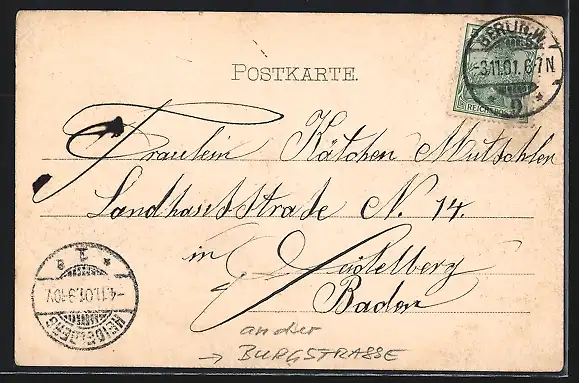 POSTKARTE.
BERLIN.W.
-3.11.01. 6-7N.
* 9 *
REICHSPOST
Fräulein Kätchen Mutschler
Landhausstraße N. 14.
in Heidelberg
Baden
HEIDELBERG
-4.11.01.9-10V.
* 1 a
an der
→ BURGSTRASSE